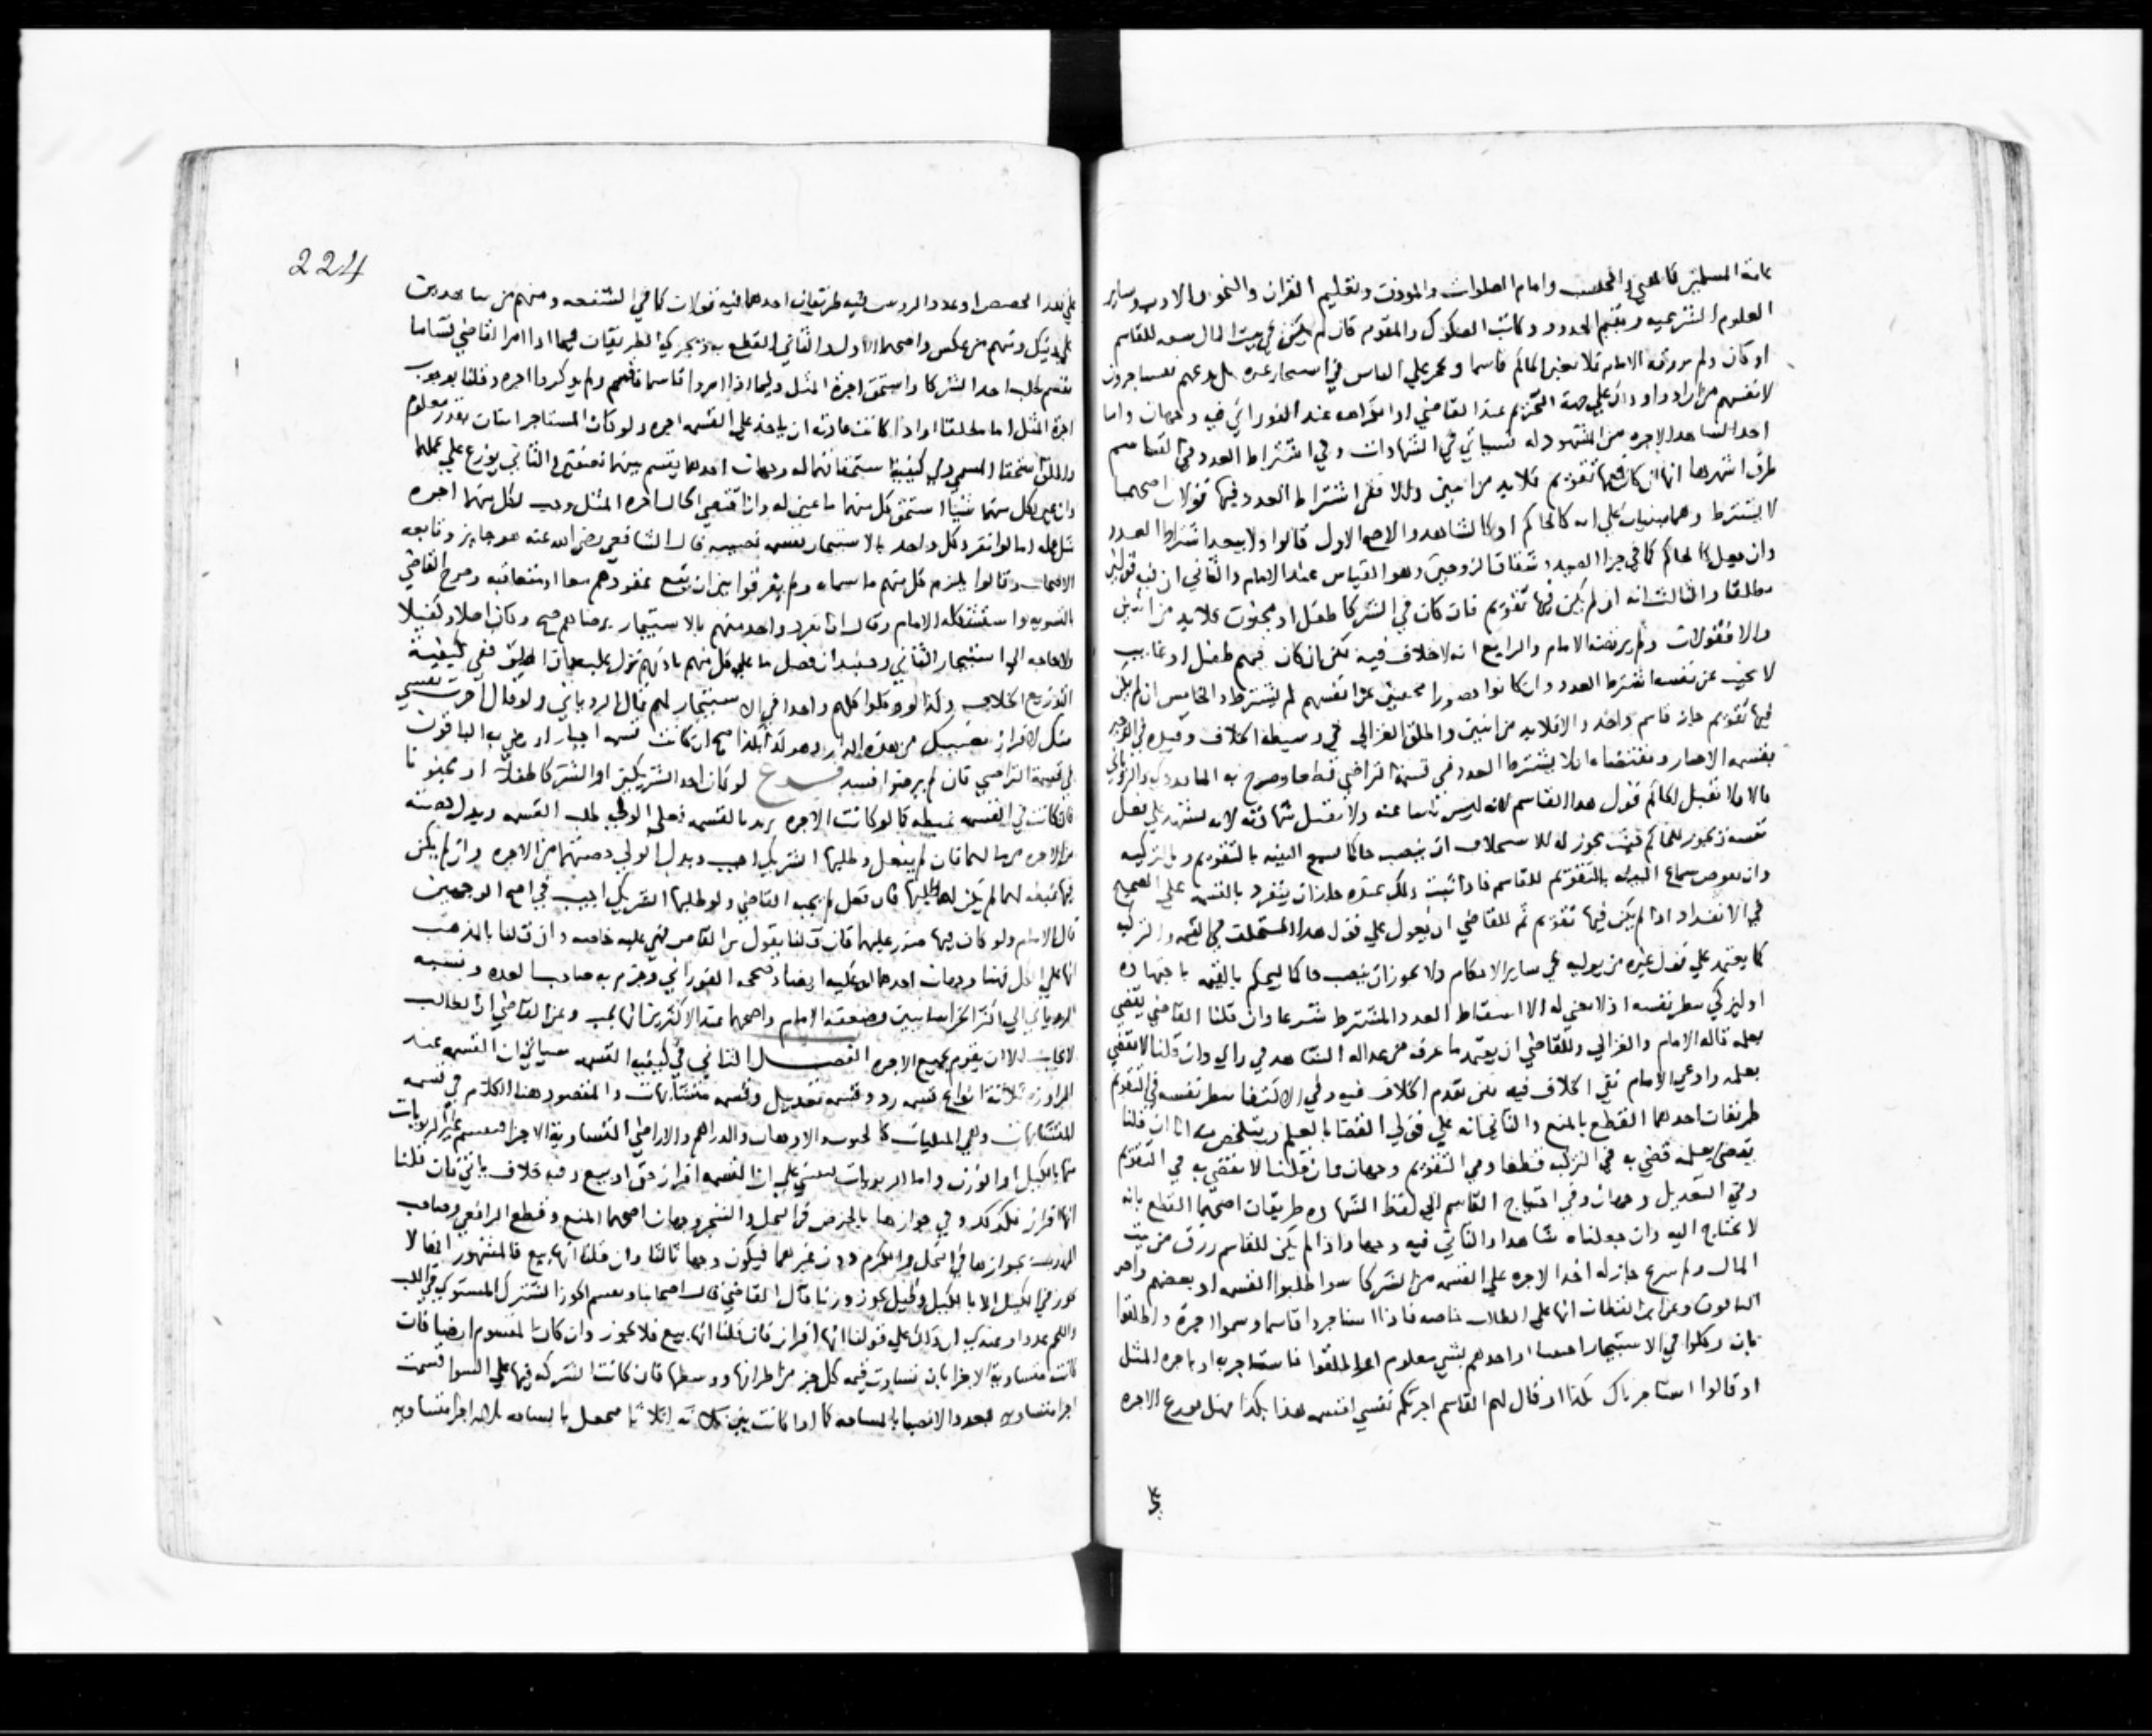 عامة المسلمين كالمفتي والمحتسب وامام الصلوات والموذن وتعليم القران والنحو والادب وساير
العلوم الشرعيه ومقيم الحدود وكاتب الصكوك والمقوم فان لم يكن في بيت المال سعه للقاسم
او كان ولم يرزقه الامام فلا يعين الحاكم قاسما ولا يجبر علي الناس في استيجار غيره بل يدعهم يستاجرون
لانفسهم من ارادوا وذلك علي جهة التحريم عند القاضي او الكراهه عند الفوراني فيه وجهان واما
اخذ الشاهد الاجره من المشهود له فسياتي في الشهادات وفي اشتراط العدد في القاسم
طرق اشهرها انها ان كان فيها تقويم فلا بد من اثنين والا ففي اشتراط العدد فيها قولان اصحهما
لا يشترط وهما مبنيان علي انه كالحاكم او كالشاهد والاصح الاول قالوا ولا يبعد اشتراط العدد
وان جعل كالحاكم كما في جزا الصيد وشقاق الزوجين وهو القياس عند الامام والثاني ان فيه قولين
مطلقا والثالث انه ان لم يكن فيها تقويم فان كان في الشركا طفل او مجنون فلا بد من اثنين
والا فقولان ولم يرتضه الامام والرابع انه لا خلاف فيه لكن ان كان فيهم طفل او غايب
لا يجيب عن نفسه اشترط العدد وان كانوا حضورا مجيبين عن انفسهم لم يشترط والخامس ان لم يكن
فيها تقويم جاز قاسم واحد والا فلا بد من اثنين واطلق الغزالي في وسيطه الخلاف وقيده في الوجيز
بقسمه الاجبار ومقتضاه ان لا يشترط العدد في قسمة التراضي قطعا وصرح به الماوردي والروياني
قالا ولا تقبل الحاكم قول هذا القاسم لانه ليس نايبا عنه ولا تقبل شهادته لانه يشهد علي فعل
نفسه ويجوز للحاكم حيث يجوز له الاستخلاف ان ينصب حاكما يسمع البينه بالتقويم وبالتزكيه
وان يفوض سماع البينه بالتقويم للقاسم فاذا ثبت ذلك عنده جاز ان ينفرد بالقسمه علي الصحيح
في الانفراد اذا لم يكن فيها تقويم ثم للقاضي ان يعول علي قول هذا المستخلف في القيمه والتزكيه
كما يعتمد علي قول غيره من يوليه في ساير الاحكام ولا يجوز ان ينصب حاكما ليحكم بالقيمه باجتهاده
او ليزكي بنظر نفسه اذ لا معني له الا اسقاط العدد المشترط شرعا وان قلنا القاضي يقضي
بعلمه قاله الامام والغزالي وللقاضي ان يعتمد ما عرفه من عداله الشاهد في راي وان قلنا لا يقضي
بعلمه وادعي الامام نفي الخلاف فيه لكن تقدم الخلاف فيه وفي الاكتفا بنظر نفسه في التقويم
طريقان احدهما القطع بالمنع والثاني انه علي قولي القضا بالعلم ويتلخص منه انا ان قلنا
يقضي بعلمه قضي به في التزكيه قطعا وفي التقويم وجهان وان قلنا لا يقضي به في التقويم
وفي التعديل وجهان وفي احتياج القاسم الي لفظ الشهاده طريقان اصحهما القطع بانه
لا يحتاج اليه وان جعلناه شاهدا والثاني فيه وجهان واذا لم يكن للقاسم رزق من بيت
المال ولم يتبرع جاز له اخذ الاجره علي القسمه من الشركا سوا طلبوا القسمه او بعضهم واجر
الباقون وعن ابن القطان انها علي الطالب خاصه فاذا استاجروا قاسما وسموا اجرة واطلقوا
بان وكلوا في الاستيجار اجنبيا او احدهم بشي معلوم او اطلقوا فاستاجر به او باجره المثل
او قالوا استاجرناك بكذا او قال لهم القاسم اجرتكم نفسي اقسم هذا بكذا فهل توزع الاجره
224
علي قدر الحصص او عدد الروس فيه طريقان احدهما فيه قولان كما في الشفعه ومنهم من
علي ذلك ومنهم من عكس واصحهما الاول والثاني القطع به ويجري الطريقان فيما اذا امر القاضي قساما
فقسم بطلب احد الشركا واستحق اجرة المثل وفيما اذا امروا قاسما فقسم ولم يذكروا اجره وقلنا بوجوب
اجرة المثل اما مطلقا او اذا كانت عادته ان ياخذ علي القسمه اجره ولو كان المستاجر اثنان بقدر معلوم
واطلق استحقا المسمي وفي كيفية استحقاقهما له وجهان احدهما يقسم بينهما نصفين والثاني يوزع علي عملهما
وان عين لكل منهما شيا استحق كل منهما ما عين له وان اقتضي الحال اجره المثل وجب لكل منهما اجره
مثل عمله اما لو انفرد كل واحد بالاستيجار لقسمه نصيبه قال الشافعي رضي الله عنه هو جايز وتابعه
الاصحاب وقالوا يلزم كل منهم ما سماه ولم يفرقوا بين ان تقع عقودهم معا او متعاقبه وصرح القاضي
بالتسويه واستشكله الامام وقال ان انفرد واحد منهم بالاستيجار برضاهم صح وكان اصلا وكفيلا
ولا حاجه الي استيجار الثاني وحينيذ ان فصل ما علي كل منهم باذنهم نزل عليه وان اطلق ففي كيفية
التوزيع الخلاف وكذا لو وكلوا كلهم واحدا في الاستيجار لهم قال الروياني ولو قال اجرت نفسي
منك لافراز نصيبك من هذه الدار وهو كذا بكذا صح ان كانت قسمه اجبار او رضي به الباقون
في قسمة التراضي فان لم يرضوا فسد فرع لو كان احد الشريكين او الشركا طفلا او مجنونا
فان كانت في القسمه غبطه كما لو كانت الاجره تزيد بالقسمه فعلي الولي طلب القسمه ويبذل حصته
من الاجره من مالهما فان لم يفعل وطلبها الشريك اجيب ويبذل الولي حصتهما من الاجره وان لم يكن
فيها غبطه لهما لم يكن له طلبها فان فعل لم يجبه القاضي ولو طلبها الشريك اجيب في اصح الوجهين
قال الامام ولو كان فيها ضرر عليهما فان قلنا بقول من القاص فهي عليه خاصه وان قلنا بالمذهب
انها علي الكل فهنا وجهان احدهما انها عليه ايضا وصححه الفوراني وجزم به صاحبا العده ونسبه
الروياني الي اكثر الخراسانيين وضعفه الامام واصحهما عند الاكثرين انها تجب وعن القاضي ان الطالب
لا يجاب الا ان يقوم بجميع الاجره الفصل الثاني في كيفيه القسمه سياتي ان القسمه عند
المراوزه ثلاثة انواع قسمه رد وقسمه تعديل وقسمه متشابهات والمقصود هنا الكلام في قسمه
المتشابهات وهي المثليات كالحبوب والادهان والدراهم والاراضي المتساوية الاجزا فيقسم غير الربويات
منها بالكيل او الوزن واما الربويات فينبني علي ان القسمه افراز حق او بيع وفيه خلاف ياتي فان قلنا
انها افراز فكذلك وفي جوازها بالخرص في النخل والشجر وجهان اصحهما المنع وقطع الرافعي وصاحب
المهذب بجوازها في النخل والكرم دون غيرهما فيكون وجها ثالثا وان قلنا انها بيع فالمشهور انها لا
تجوز في المكيل الا بالكيل وقيل يجوز وزنا قال القاضي قال اصحابنا ويقسم الجوز المشترك المستوي في اللب
والفحم عددا وعندي ان ذلك علي قولنا انها افراز فان قلنا انها بيع فلا يجوز وان كان المقسوم ارضا فان
كانت متساوية الاجزا بان تساوت قيمه كل جز من اطرافها ووسطها فان كانت الشركه فيها علي السوا قسمت
اجزا متساويه بعدد الانصبا بالمساحه كما اذا كانت بين ثلاثة اثلاثا فتجعل بالمساحه ثلاثه اجزا متساويه